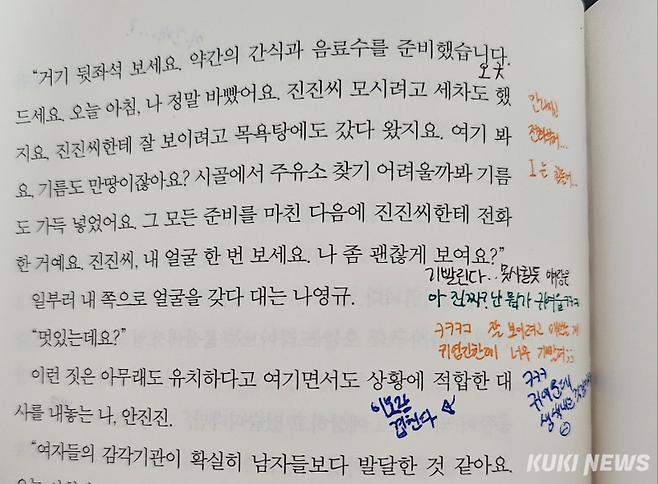 “거기 뒷좌석 보세요. 약간의 간식과 음료수를 준비했습니다.
오大
드세요. 오늘 아침, 나 정말 바빴어요. 진진씨 모시려고 세차도 했
지요. 진진씨한테 잘 보이려고 목욕탕에도 갔다 왔지요. 여기 봐
요. 기름도 만땅이잖아요? 시골에서 주유소 찾기 어려울까봐 기름
I는
도 가득 넣었어요. 그 모든 준비를 마친 다음에 진진씨한테 전화
한 거예요. 진진씨, 내 얼굴 한 번 보세요. 나 좀 괜찮게 보여요?”
기빨린다..못사귈듯
일부러 내 쪽으로 얼굴을 갖다 대는 나영규.
아 진짜? 난 뭔가 귀여울ㅋㅋㅋ
“멋있는데요?”
ㅋㅋㅋㅋ 잘 보이려고
귀엽긴한데 너무 기빨려;;
이런 짓은 아무래도 유치하다고 여기면서도 상황에 적합한 대
ㅋㅋㅋ
귀여운데
사를 내놓는 나, 안진진.
“여자들의 감각기관이 확실히 남자들보다 발달한 것 같아요.
KUKI NEWS